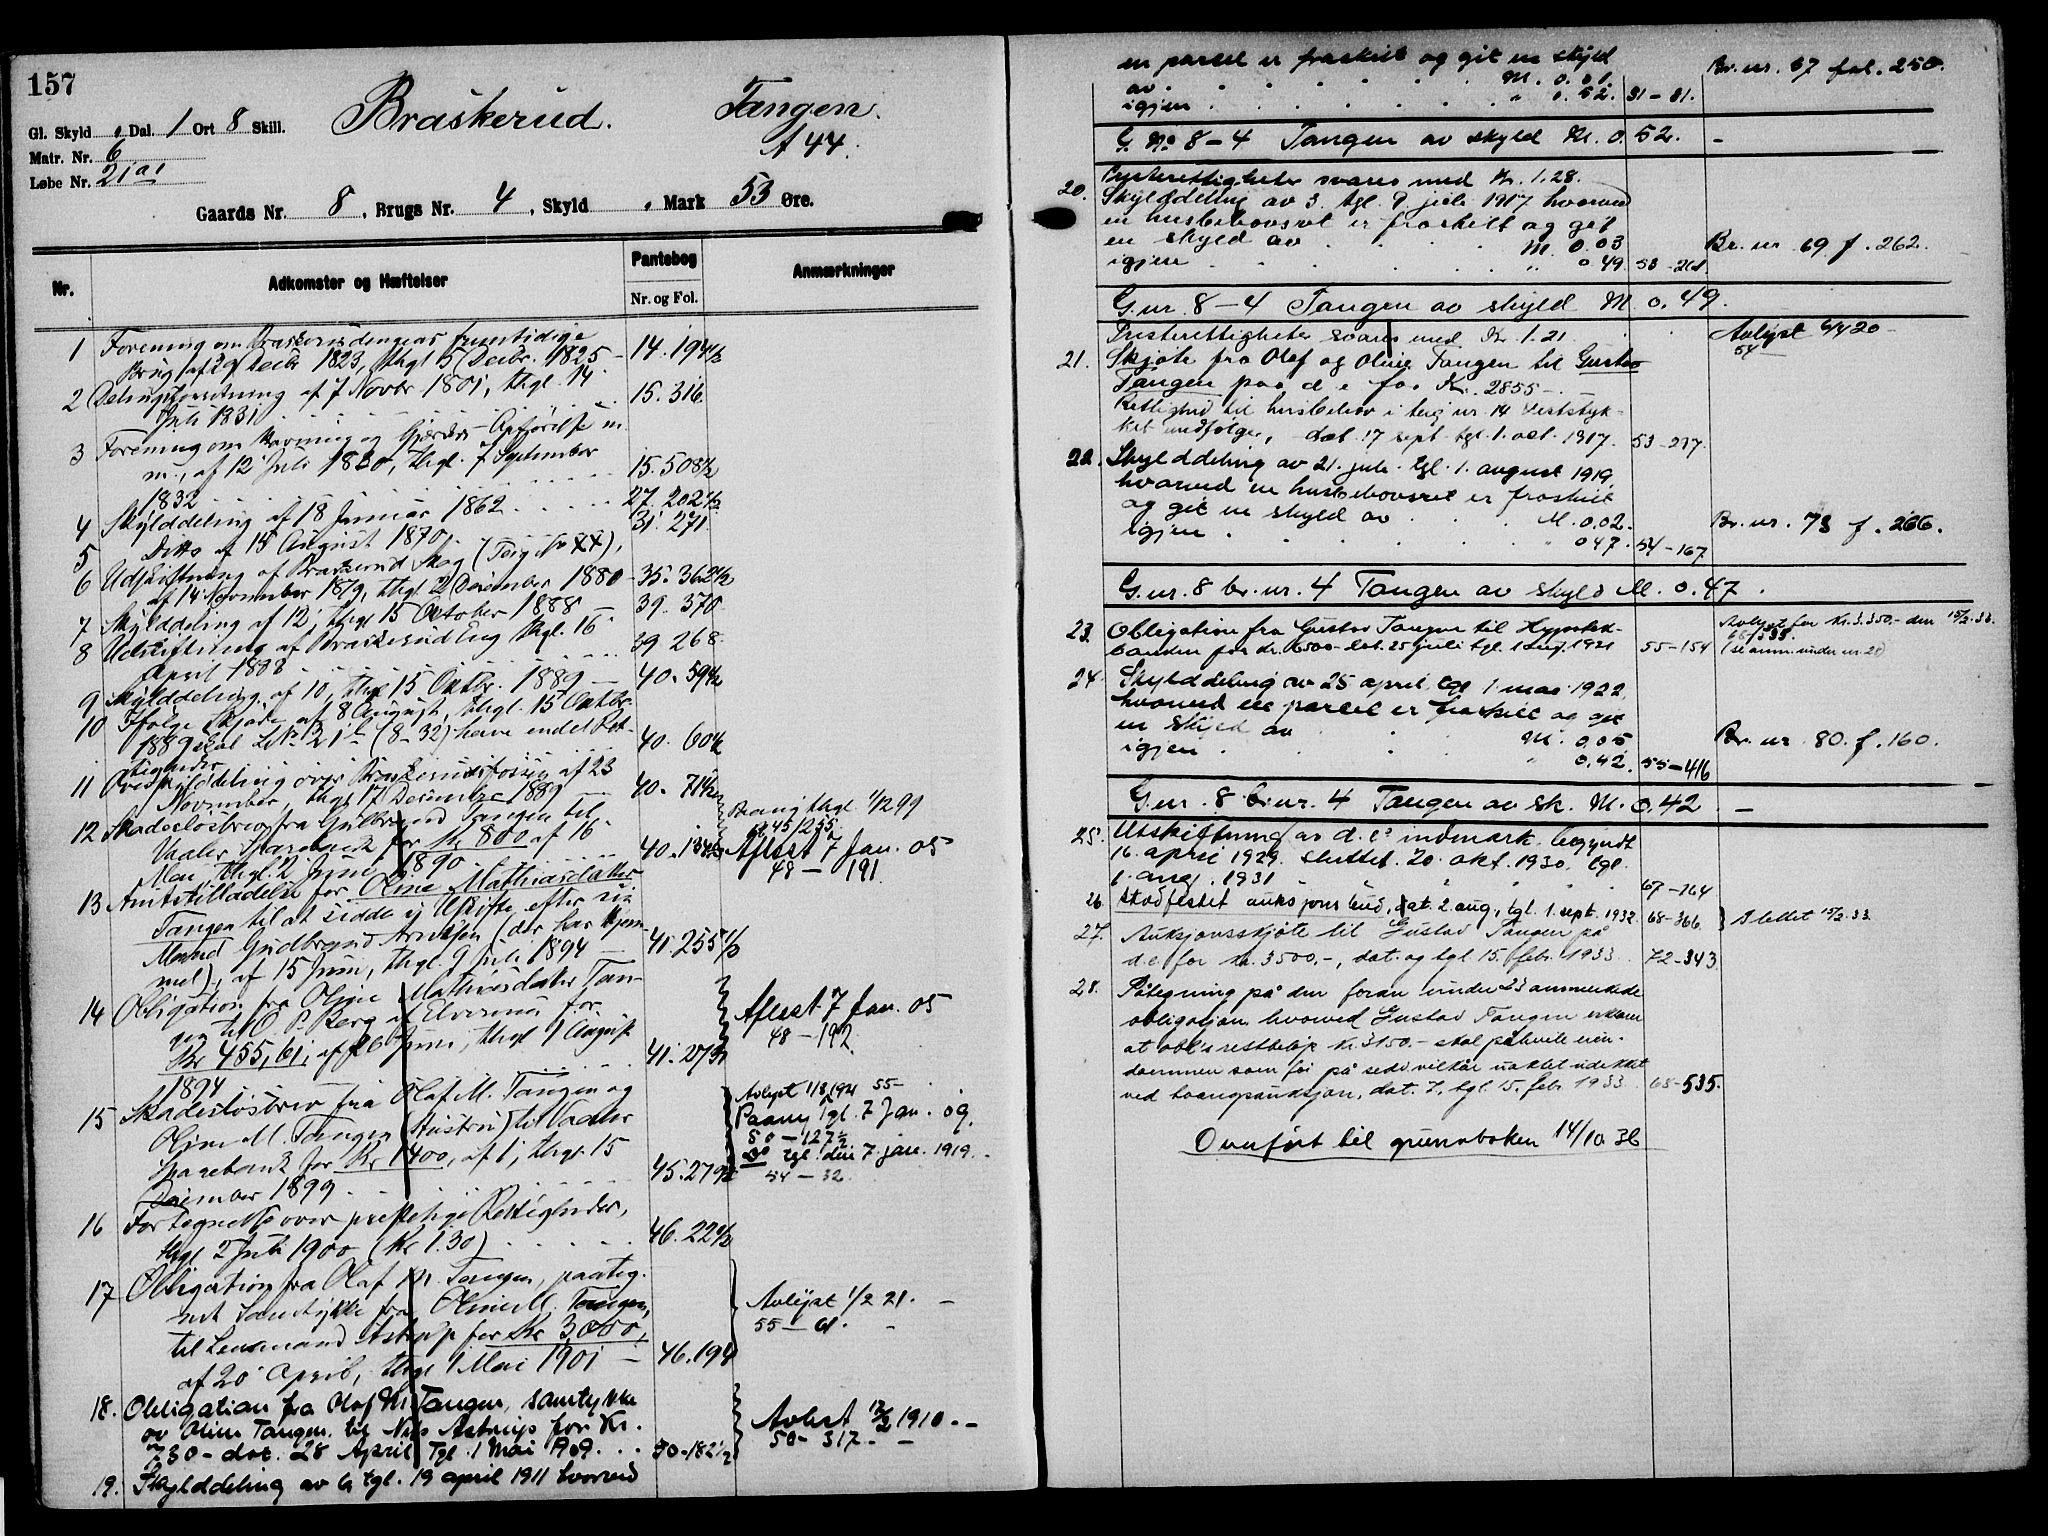 157
Gl. Skyld , Dal. 1 Ort 8 Skill.
Braskerud. Tangen.
A 44.
Matr. Nr. 6
Løbe Nr. 21a1
Gaards Nr. 8, Brugs Nr. 4, Skyld , Mark 53 Øre.
Nr. Adkomster og Hæftelser Pantebog Anmærkninger
Nr. og Fol.
1 Forening om Braskerudengens fremtidige
Brug af 29 Decbr 1823, thgl 5 Decbr. 1825 – 14. 194½
2 Delingsforretning af 7 Novbr 1801, thgl. 14
Juli 1831 15. 316
3 Forening om Havning og Gjerders Opførelse m.
m., af 12 Juli 1830, thgl. 7 September
1832 15. 508½
4 Skylddeling af 18 Januar 1862 27. 202½
5 Ditto af 15 August 1870 31. 271
6 Udskiftning af Braskerud Skog (Teig No XX),
af 14 November 1879, thgl. 2 December 1880 – 35. 362½
7 Skylddeling af 12, thgl 15 Oktober 1888 – 39. 370
8 Udskiftning af Braskerud Eng thgl. 16
April 1888 39 268
9 Skylddeling af 10, thgl 15 Oktbr. 1889 – 40. 59½
10 Ifølge Skjøde af 8 August, thgl. 15 Oktbr.
1889 skal L No 21 (8-32) have endel Ret-
tigheder 40. 60½
11 Overskylddeling over Braskerudfossen af 23
November, thgl 17 December 1889 – 40. 71½
12 Skadesløsbrev fra Gulbrand Tangen til
Vaaler Sparebank for Kr 800 af 16
Mai, thgl. 2 Juni 1890 40.
Paateg thgl 1/2 99
45/255
Aflæst 7 Jan. 05
48 – 191.
13 Amtstilladelse for Oline Mathiasdatter
Tangen til at sidde i Uskifte efter sin
Mand Gudbrand Arnesen (der har
), af 15 Juni, thgl. 9 Juli 1894 – 41. 255½
14 Obligation fra Oline Mathisdatter Tan-
gen til O. P. Berg af Elverum for
Kr 455,61, af 26 Juni, thgl 1 August
1894 41. 273½
Aflæst 7 Jan. 05
48 – 192.
15 Skadesløsbrev fra Olaf M. Tangen og
Oline M. Tangen (Hustru) til Vaaler
Sparebank for Kr 1400, af 1, thgl. 15
December 1899 45. 279½
Avlyst 1/8 1921 55–
Paateg tgl. 7 Jan. 09.
50 – 127½
Do tgl. den 7 jan. 1919. –
54 – 32.
16 Fortegnelse over prestelige Rettigheder,
thgl 2 Juli 1900 (Kr 1.30) 46. 22½
17 Obligation fra Olaf M. Tangen, paateg-
net Samtykke fra Oline M. Tangen,
til Lensmand Astrup for Kr 3,000,
af 20 April, thgl 1 Mai 1901 – 46. 194
Avlyst 1/2 21. –
55 – 61. –
18. Obligation fra Olaf M. Tangen, samtykke
av Oline Tangen til Nils Astrup for Kr.
730 – dat. 28 April Tgl. 1 Mai 1909. 50-182½
Avlest 12/2 1910. –
50 – 317 – –
19. Skylddeling av 6 tgl. 19 april 1911 hvorved
en parcel er fraskilt og git en skyld
av M. 0.01. Br. nr. 67 fol. 250.
igjen " 0.52. 51 – 81.
G. No 8 – 4 Tangen av skyld M. 0.52. –
Presterettigheter svares med Kr. 1.28.
20. Skylddeling av 3. tgl. 9. juli 1917 hvorved
en husbehovsret er fraskilt og git
en skyld av M. 0.03 Br. nr. 69 f. 262.
igjen " 0.49. 53 – 261
G.nr. 8 – 4 Tangen av skyld M 0.49.
Presterettigheter svares med Kr 1.21 Avlyst 6/4 20 –
54
21. Skjøte fra Olaf og Oline Tangen til Gustav
Tangen paa d.e. for Kr. 2855 –
Rettighed til husbehov i teig nr. 14 Preststyk-
ket medfølger, dat. 17 sept. tgl. 1. oct. 1917. 53 – 297.
22. Skylddeling av 21. juli tgl. 1. august 1919,
hvorved en husbehovsret er fraskilt
og git en skyld av M. 0.02. Br. nr. 73 f. 266.
igjen " 0 47. 54 – 167
G.nr. 8 br. nr. 4 Tangen av skyld M. 0.47.
23. Obligation fra Gustav Tangen til Hypotek-
banken for Kr. 6500 – dat. 25 juli tgl. 1 aug. 1921 55 – 154
Avlyst for Kr. 3.350,- den 15/2.33.
68/535.
(se anm. under nr. 28)
24 Skylddeling av 25 april tgl. 1 mai 1922,
hvorved en parcel er fraskilt og git
en skyld av M. 0.05 Br. nr. 80. f. 160.
igjen " 0.42. 55 – 416
G.nr. 8 br. nr. 4 Tangen av sk. M. 0.42 –
25. Utskiftning av d.e.s indmark. begyndt
16. april 1929. sluttet. 20. okt. 1930. tgl.
1. aug. 1931 67 – 264
26. Stadfestet auksjonsbud, dat. 2 aug., tgl. 1. sept. 1932 68 – 366.
Slettet 15/2 33.
27. Auksjonsskjøte til Gustav Tangen på
d.e. for kr. 3500,–, dat. og tgl. 15. febr. 1933 72 – 343
28. Påtegning på den foran under 23 anmerkede
obligasjon hvorved Gustav Tangen erklærer
at obl.s restbeløp kr. 3150.– skal påhvile eien-
dommen som før på vilkår uaktet
ved tvangsauksjon, dat. 7, tgl. 15. febr. 1933. 68 – 535.
Overført til grunnboken 14/10 36